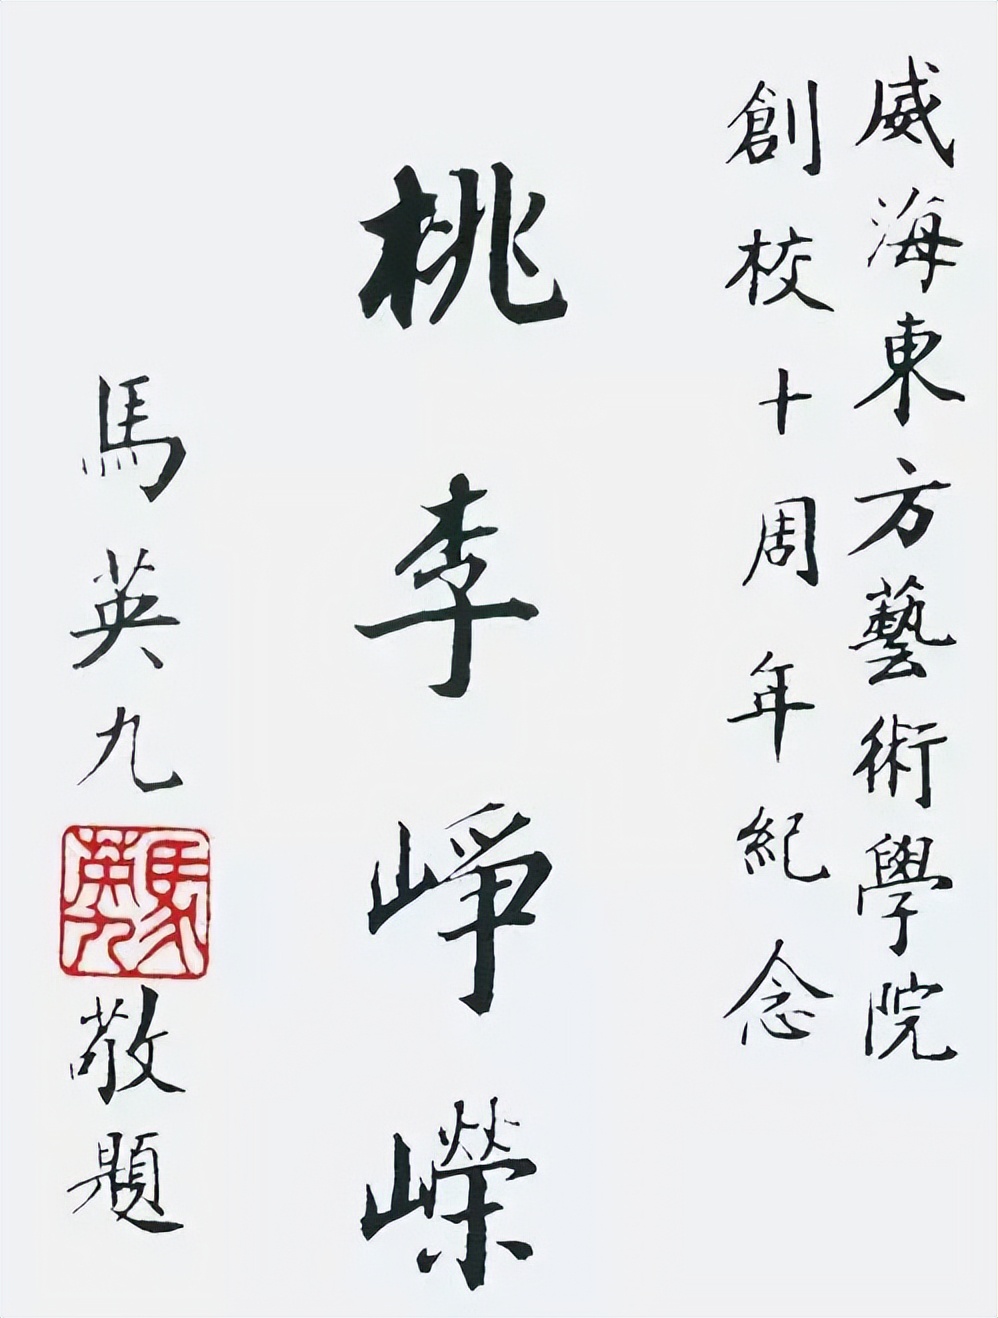 威海東方藝術學院
創校十周年紀念
桃李崢嶸
馬英九
馬英九
敬題